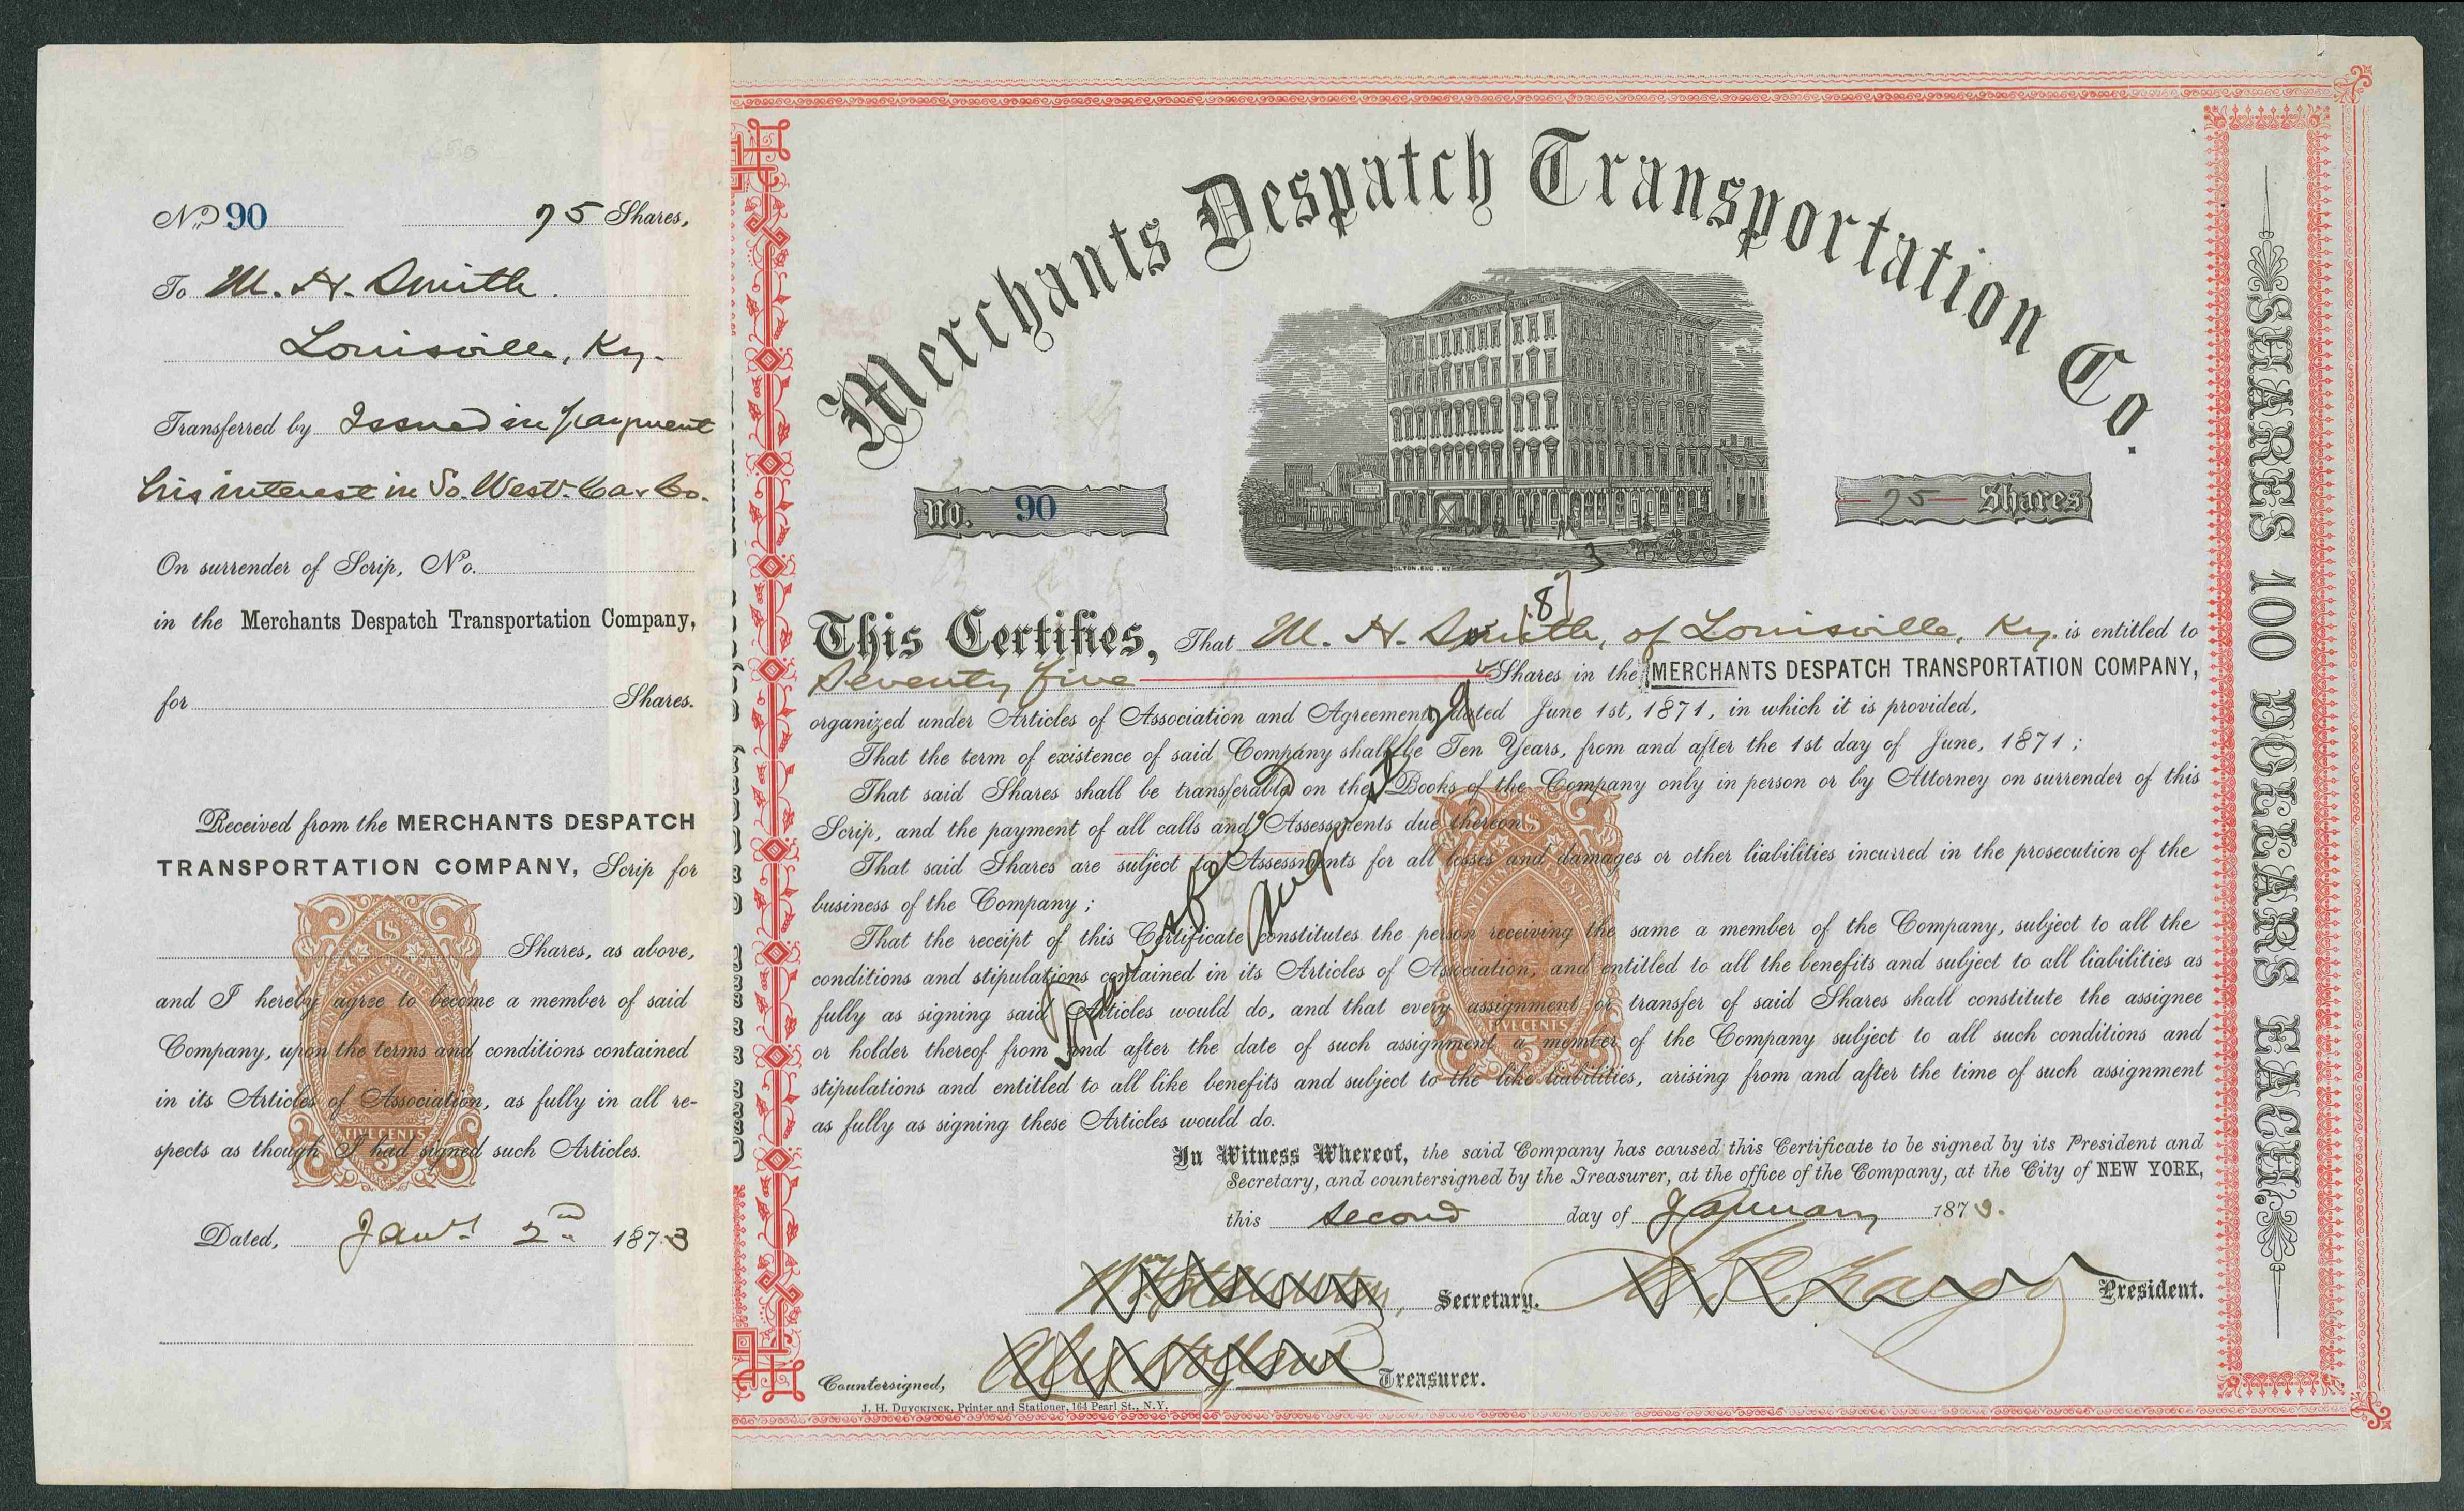 No. 90 75 Shares,
To M. H. Smith.
Louisville, Ky.
Transferred by Issued in payment
his interest in So. West. Car Co.
On surrender of Scrip, No.
in the Merchants Despatch Transportation Company,
for Shares.
Received from the MERCHANTS DESPATCH
TRANSPORTATION COMPANY, Scrip for
Shares, as above,
and I hereby agree to become a member of said
Company, upon the terms and conditions contained
in its Articles of Association, as fully in all re-
spects as though I had signed such Articles.
U.S. INTERNAL REVENUE
FIVE CENTS
5
Dated, Jany. 2nd 1873
Merchants Despatch Transportation Co.
No. 90
75 Shares
This Certifies, That M. H. Smith, of Louisville, Ky. is entitled to
Seventy five Shares in the MERCHANTS DESPATCH TRANSPORTATION COMPANY,
organized under Articles of Association and Agreement, dated June 1st, 1871, in which it is provided,
That the term of existence of said Company shall be Ten Years, from and after the 1st day of June, 1871;
That said Shares shall be transferable on the Books of the Company only in person or by Attorney on surrender of this
Scrip, and the payment of all calls and Assessments due thereon;
That said Shares are subject to Assessments for all losses and damages or other liabilities incurred in the prosecution of the
business of the Company;
That the receipt of this Certificate constitutes the person receiving the same a member of the Company, subject to all the
conditions and stipulations contained in its Articles of Association, and entitled to all the benefits and subject to all liabilities as
fully as signing said Articles would do, and that every assignment or transfer of said Shares shall constitute the assignee
or holder thereof from and after the date of such assignment, a member of the Company subject to all such conditions and
stipulations and entitled to all like benefits and subject to the like liabilities, arising from and after the time of such assignment
as fully as signing these Articles would do.
U.S. INTERNAL REVENUE
FIVE CENTS
5
Transferred
August 29 1873
In Witness Whereof, the said Company has caused this Certificate to be signed by its President and
Secretary, and countersigned by the Treasurer, at the office of the Company, at the City of NEW YORK,
this second day of January 1873.
Secretary. President.
Countersigned, Treasurer.
J. H. DUYCKINCK, Printer and Stationer, 164 Pearl St., N.Y.
SHARES 100 DOLLARS EACH.